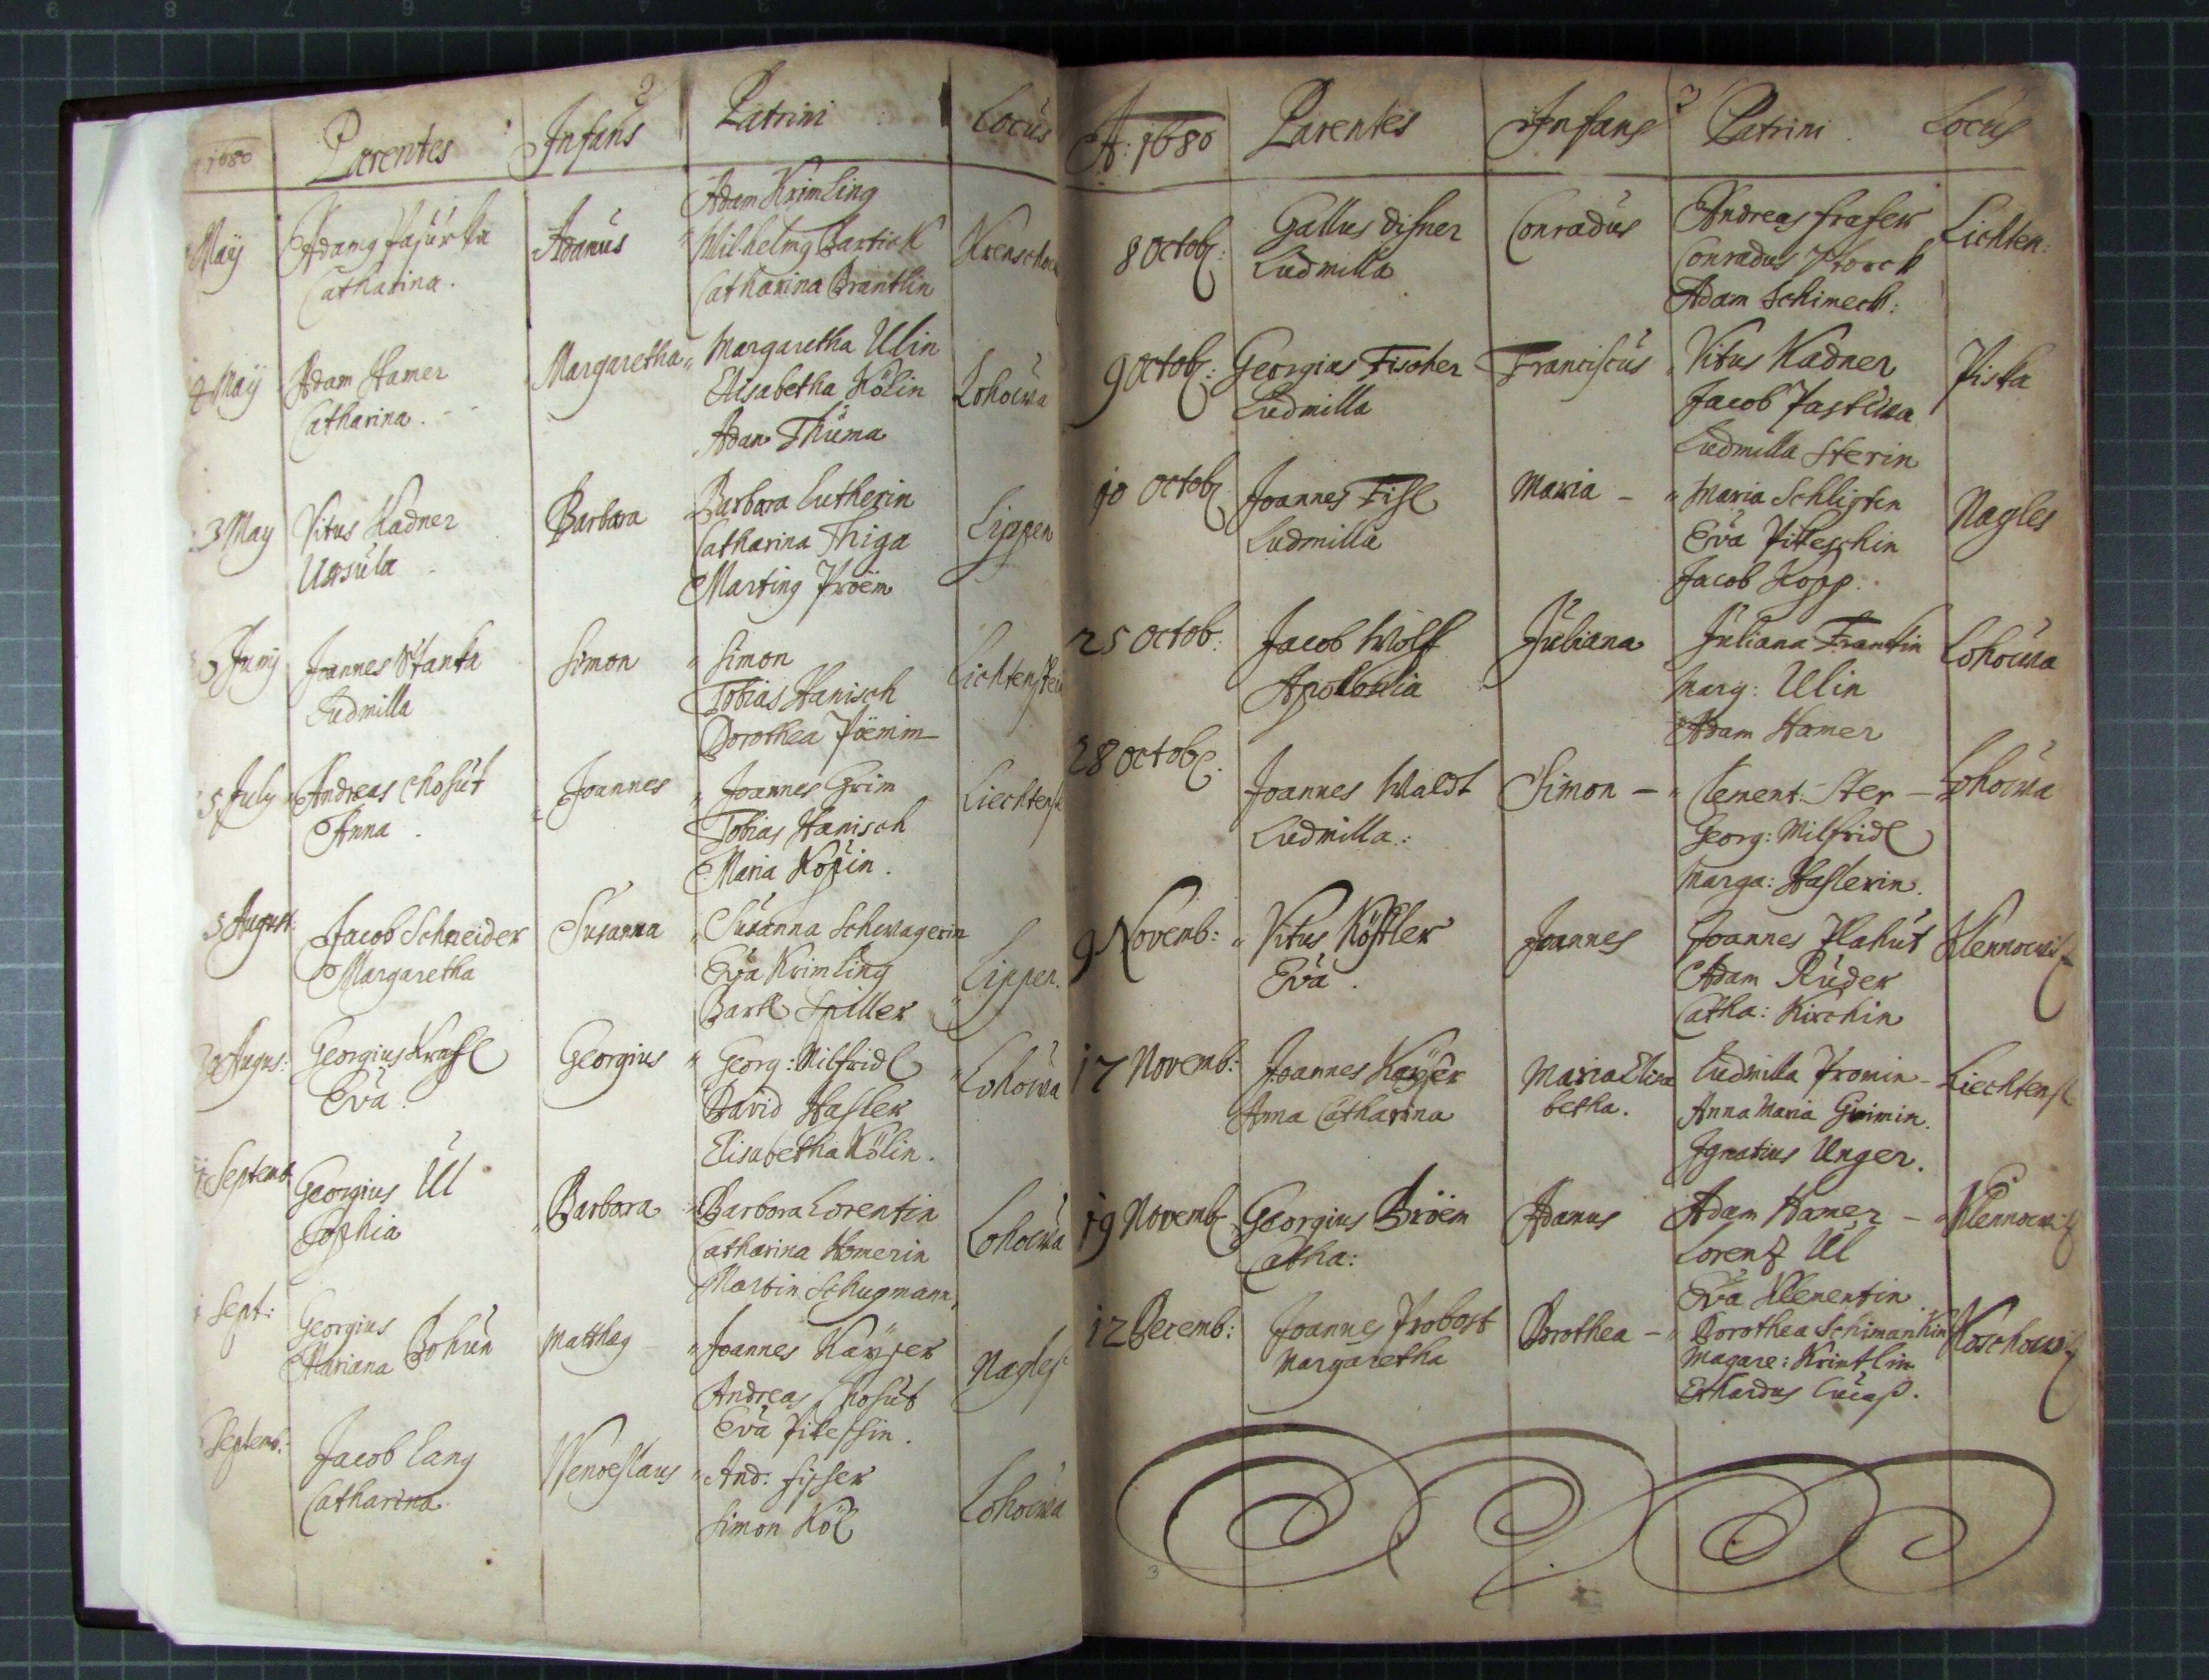 1680 Parentes Infans 2 Patrini Locus
May Adamg Catharina. Adanus Adam Krimling
Wilhelmg Bartick
Catharina Brantlin
May Adam Hamer
Catharina. Margaretha Margaretha Ulin
Elisabetha Kölin
Adam Thüma Lohowa
3 May Vitus Kadner
Ursula Barbara Barbara Lutherin
Catharina Thiga
Marting Proëm Lippen
Junij Joannes Stanka
Ludmilla Simon Simon
Tobias Hanisch
Dorothea Lichtenstein
5 July Andreas Chosut
Anna Joannes Joannes Grim
Tobias Hanisch
Maria Liechtenst
5 August: Jacob Schneider
Margaretha Susanna Susanna Schwagerin
Eva Krimling
Bartl Spiller Lippen.
Augus: Georgius Krassl
Eva. Georgius Georg: Milfridl
David Hasler
Elisabetha Kölin. Lohowa
Septemb Georgius Ul
Sophia Barbara Barbara Lorentin
Catharina Homerin
Martin Schugmann Lohowa
Sept: Georgius
Mariana Bohun Matthag Joannes Kayser
Andreas Chosut
Eva Pikessin. Nagles
Septemb: Jacob Lang
Catharina Wenceslaus And: Fisser
Simon Köl Lohowa
A: 1680 Parentes Infans 3 Patrini Locus
8 Octob: Gallus Disner
Ludmilla Conradus Andreas Fraser
Conradus
Adam Schimeck: Lichten:
9 Octob: Georgius Fischer
Ludmilla Franciscus Vitus Kadner
Jacob Pastuwa
Ludmilla Sterin Piska
10 Octob Joannes Fisl
Ludmilla Maria - Maria Schligtin
Eva Pikeschin
Jacob Kopp. Nagles
25 Octob: Jacob Wolff
Apollonia Juliana Juliana Frantin
Marg: Ulin
Adam Hamer Lohowa
28 Octob: Joannes Waldt
Ludmilla: Simon - Clement: Ster -
Georg: Milfridl
Marga: Haslerin. Lohowa
9 Novemb: Vitus Köstler
Eva. Joannes Joannes Hahut
Adam Ruder
Catha: Kirchin Klennowitz
17 Novemb: Joannes Kayser
Anna Catharina Maria Elisa
betha. Ludmilla Promin -
Anna Maria Grimin.
Ignatius Unger. Liechtenst
19 Novemb Georgius Bröem
Catha: Adamus Adam Hamer -
Lorentz Ul
Eva Klementin Klennowitz
12 Decemb: Joannes Probost
Margaretha Dorothea - Dorothea Schimankin
Magare: Krintlin
Erhardus Lucaß. Koschowitz
3